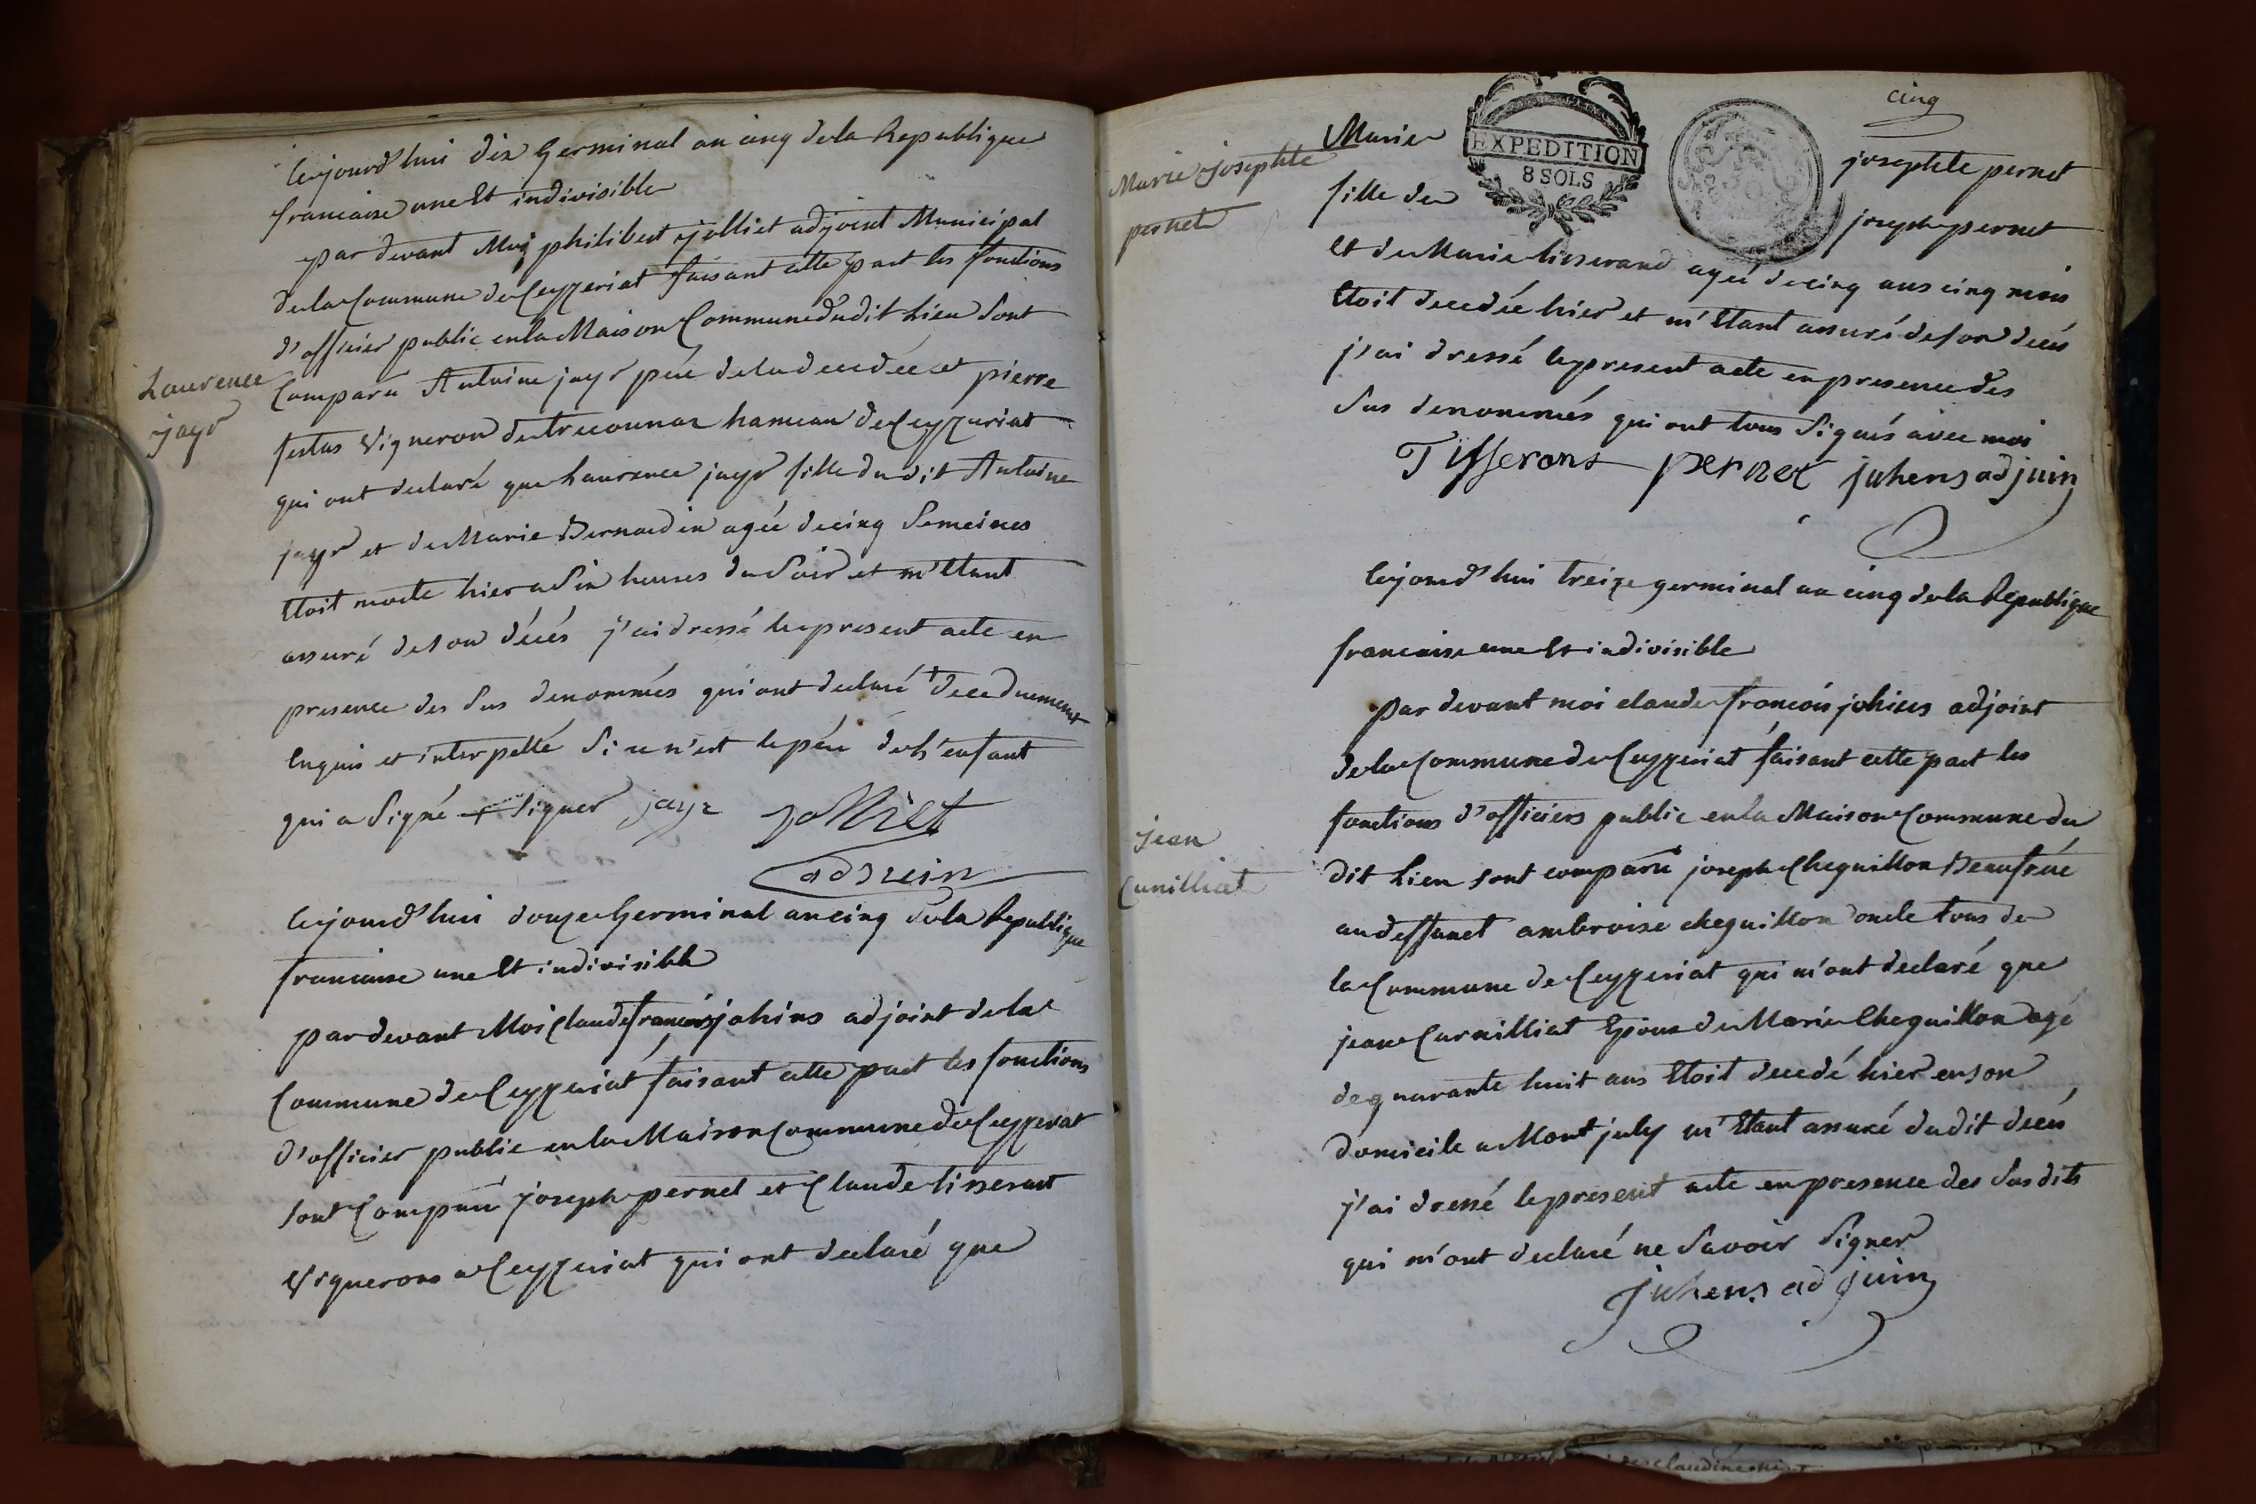 Cejourd'hui dix Germinal an cinq de la Republique
francaise une et indivisible
par devant Moi philibert jolliet adjoint Municipal
de la Commune de Ceyzeriat faisant cette part les fonctions
d'officier public en la Maison Commune dudit Lieu Sont
Comparu Antoine jayr pére de la decedée et pierre
festas Vigneron de trecounaz hameau de Ceyzeriat
qui ont declaré que Laurence jayr fille du dit Antoine
jayr et de Marie Bernardin agée de cinq Semeines
Etoit morte hier a Six heures du Soir et m'Etant
assuré de son décés j'ai dressé le present acte en
presence des Sus denommés qui ont declaré de ce duement
Enquis et interpellé Si ce n'est le pére de L'enfant
qui a Signé + Signer jayr jolliet
adjuin
Laurence
jayr
Cejourd'hui douze Germinal an cinq de la Republique
francaise une et indivisible
par devant Moi Claude francois johins adjoint de la
Commune de Ceyzeriat faisant cette part les fonctions
d'officier public en la Maison Commune de Ceyzeriat
sont Comparu joseph pernet et Claude tisserant
Vignerons a Ceyzeriat qui ont declaré que
cinq
Marie josephte
pernet
Marie josephte pernet
EXPEDITION
8 SOLS
fille de joseph pernet
et de Marie tisserand ageé de cinq ans cinq mois
Etoit decedée hier et m'Etant assuré de son décés
j'ai dressé le present acte en presence des
Sus denommés qui ont tous Signés avec moi
Tisserant pernet juhens adjuin
Cejourd'hui treize germinal an cinq de la Republique
francaise une et indivisible
par devant moi claude francois johins adjoint
de la Commune de Ceyzeriat faisant cette part les
fonctions d'officiers public en la Maison Commune du
dit Lieu sont comparu joseph Cheguillon Beaufrére
au deffunct ambroise cheguillon oncle tous de
la Commune de Ceyzeriat qui m'ont declaré que
jean Curnilliat Epoux de Marie Cheguillon agé
de quarante huit ans Etoit decedé hier en son
domicile a Mont july m'Etant assuré dudit décés
j'ai dressé le present acte en presence des Susdits
qui m'ont declaré ne Savoir Signer
juhens adjuin
jean
Cunilliat